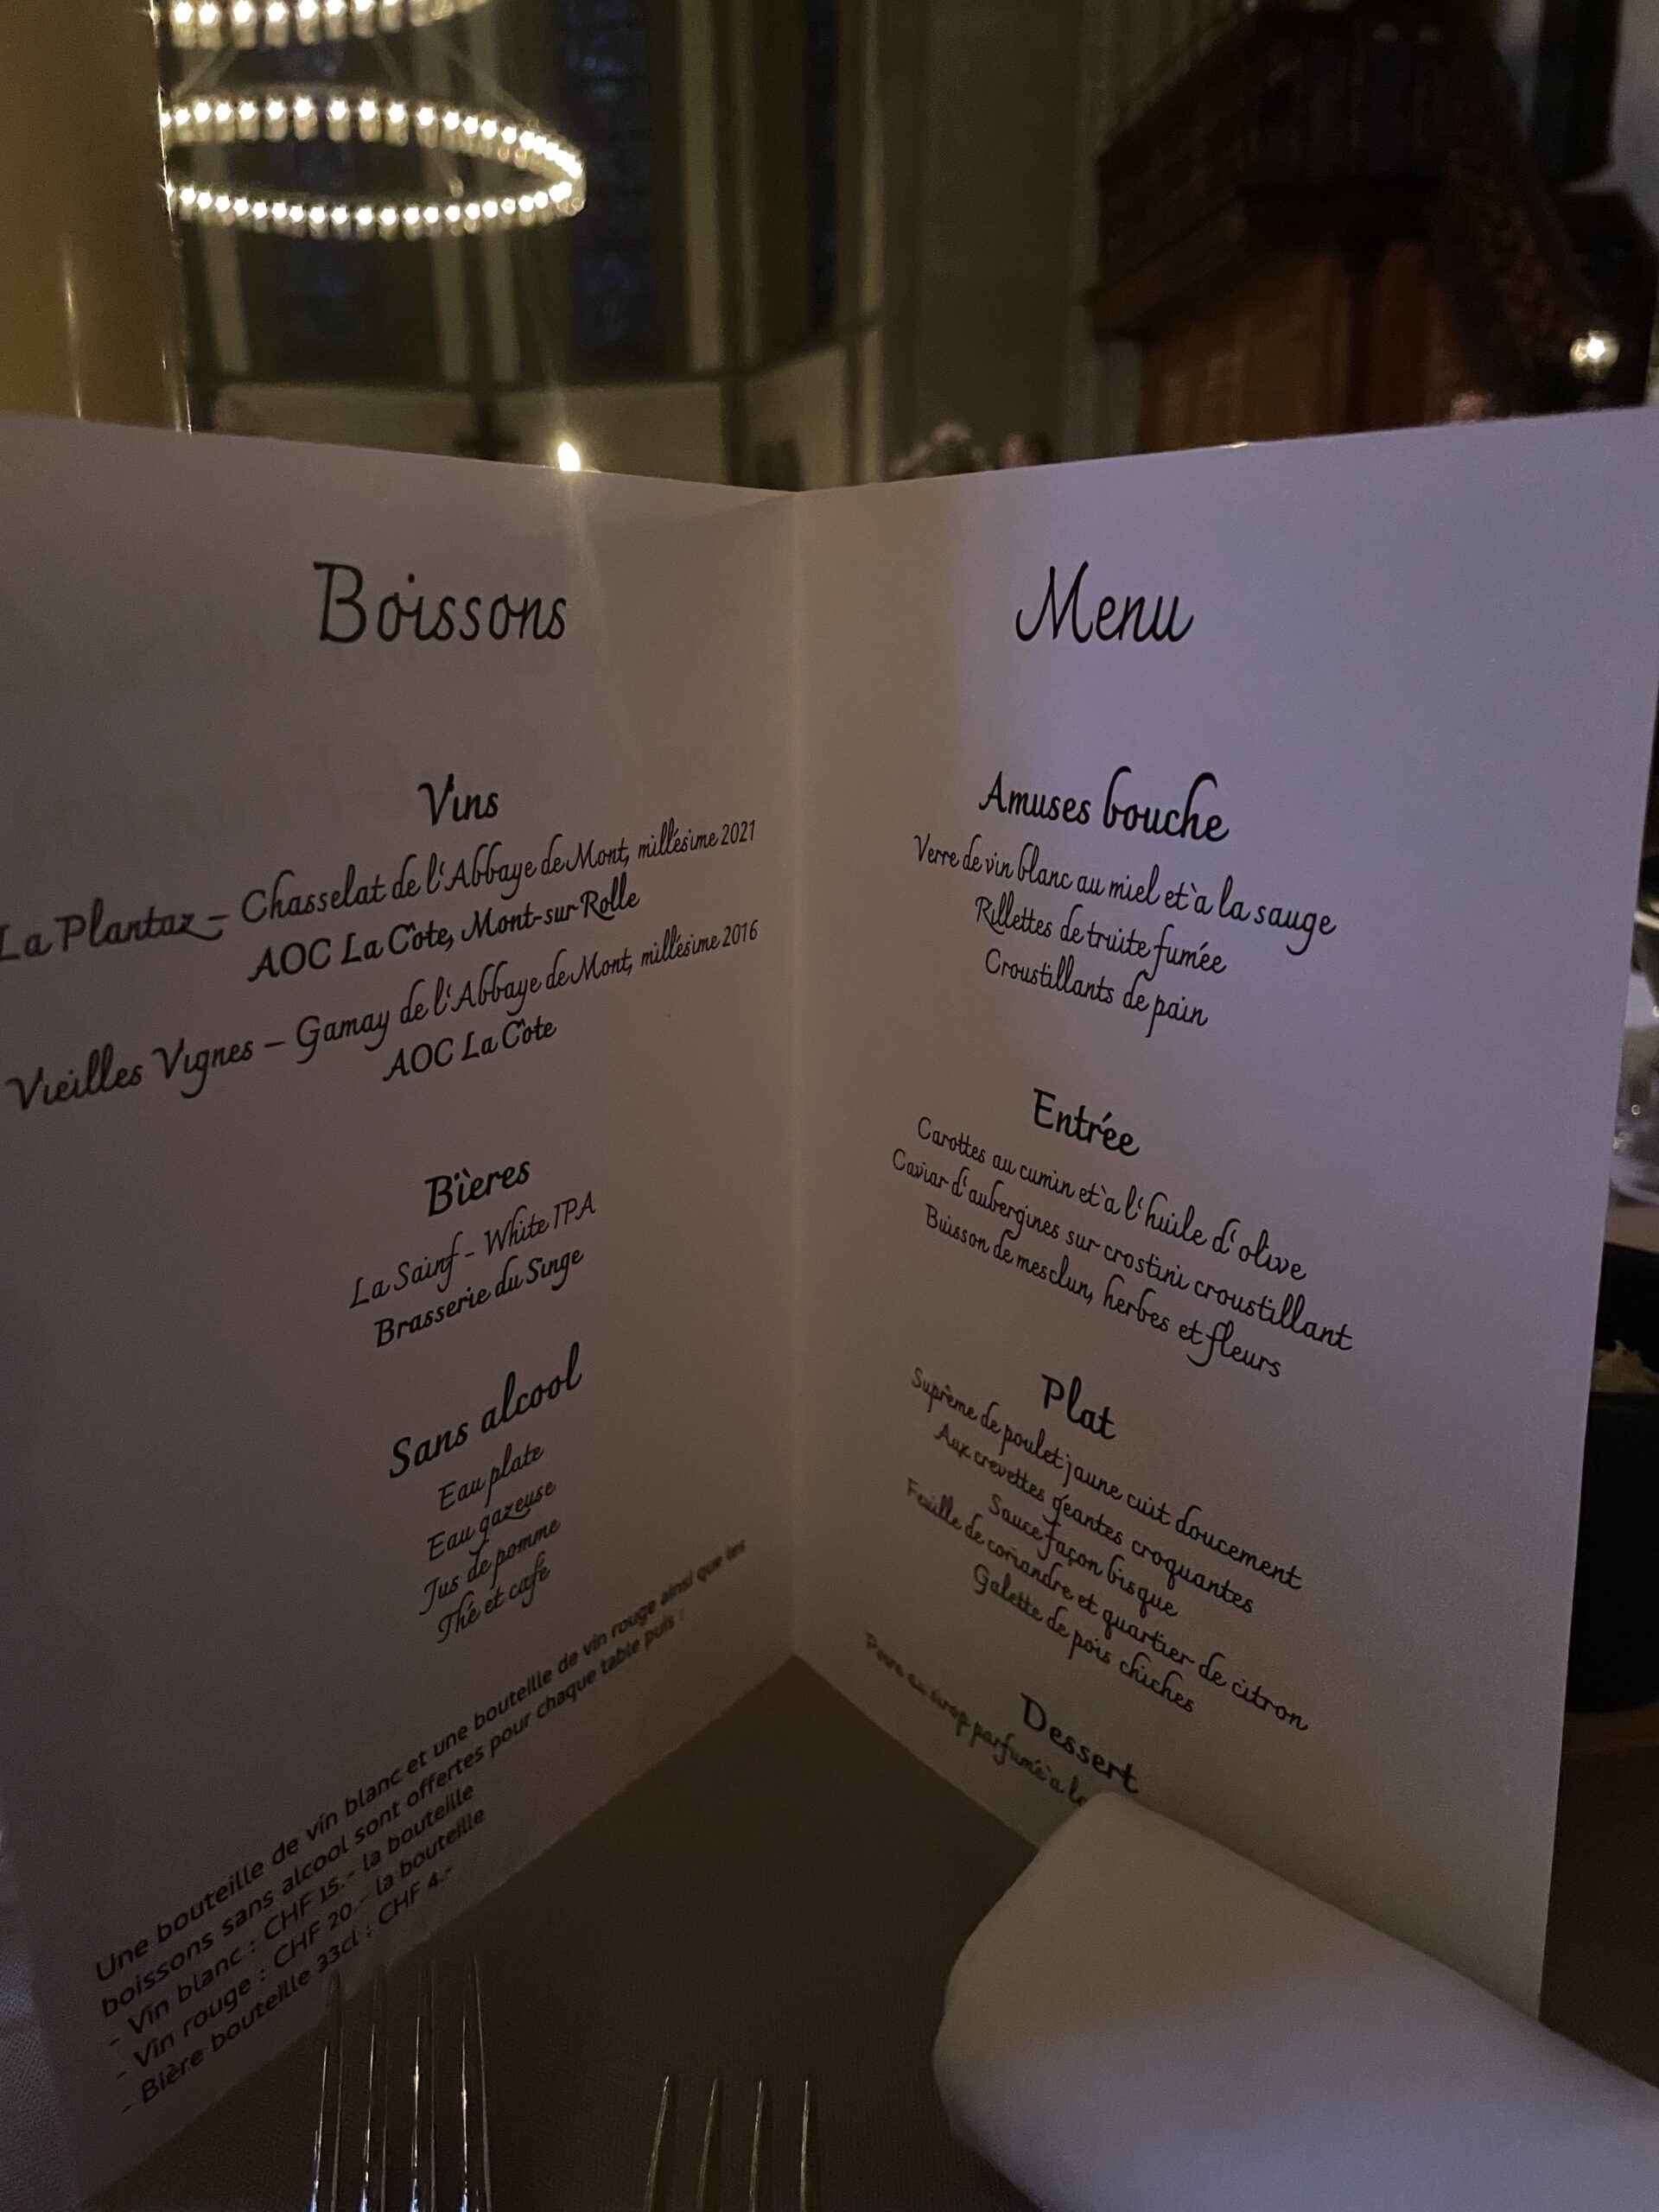 Boissons
Vins
La Plantaz – Chasselat de l'Abbaye de Mont, millésime 2021
AOC La Côte, Mont-sur-Rolle
Vieilles Vignes – Gamay de l'Abbaye de Mont, millésime 2016
AOC La Côte
Bières
La Sainf - White IPA
Brasserie du Singe
Sans alcool
Eau plate
Eau gazeuse
Jus de pomme
Thé et café
Une bouteille de vin blanc et une bouteille de vin rouge ainsi que les
boissons sans alcool sont offertes pour chaque table puis :
- Vin blanc : CHF 15.- la bouteille
- Vin rouge : CHF 20.- la bouteille
- Bière bouteille 33cl : CHF 4.-
Menu
Amuses bouche
Verre de vin blanc au miel et à la sauge
Rillettes de truite fumée
Croustillants de pain
Entrée
Carottes au cumin et à l'huile d'olive
Caviar d'aubergines sur crostini croustillant
Buisson de mesclun, herbes et fleurs
Plat
Suprême de poulet jaune cuit doucement
Aux crevettes géantes croquantes
Sauce façon bisque
Feuille de coriandre et quartier de citron
Galette de pois chiches
Dessert
Poire au sirop parfumé à la